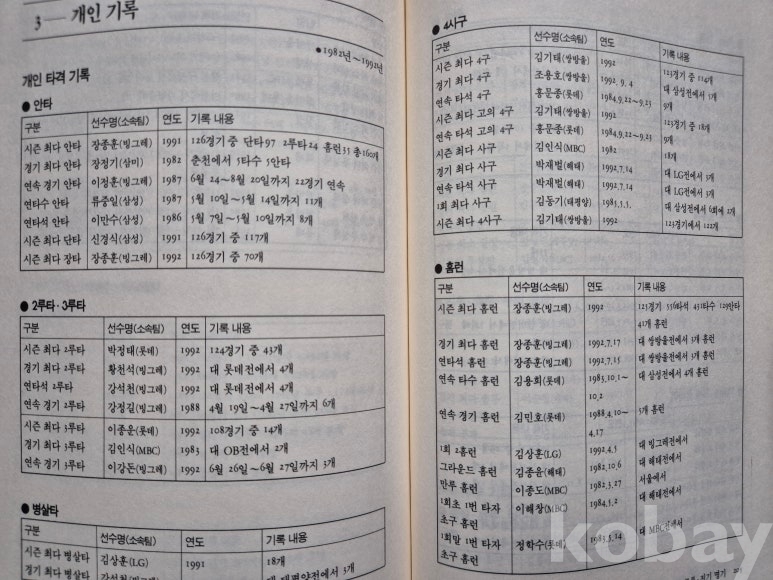 3 — 개인 기록
●1982년~1992년
개인 타격 기록
● 안타
구분 선수명(소속팀) 연도 기록 내용
시즌 최다 안타 장종훈(빙그레) 1991 126경기 중 단타97 2루타24 홈런35 총160개
경기 최다 안타 장정기(삼미) 1982 춘천에서 5타수 5안타
연속 경기 안타 이정훈(빙그레) 1987 6월 24~8월 20일까지 22경기 연속
연타수 안타 류중일(삼성) 1987 5월 10일~5월 14일까지 11개
연타석 안타 이만수(삼성) 1986 5월 7일~5월 10일까지 8개
시즌 최다 단타 신경식(삼성) 1991 126경기 중 117개
시즌 최다 장타 장종훈(빙그레) 1992 126경기 중 70개
● 2루타·3루타
구분 선수명(소속팀) 연도 기록 내용
시즌 최다 2루타 박정태(롯데) 1992 124경기 중 43개
경기 최다 2루타 황천석(빙그레) 1992 대 롯데전에서 4개
연타석 2루타 강석천(빙그레) 1992 대 롯데전에서 4개
연속 경기 2루타 강정길(빙그레) 1988 4월 19일~4월 27일까지 6개
시즌 최다 3루타 이종운(롯데) 1992 108경기 중 14개
경기 최다 3루타 김인식(MBC) 1983 대 OB전에서 2개
연속 경기 3루타 이강돈(빙그레) 1992 6월 26일~6월 27일까지 3개
● 병살타
구분 선수명(소속팀) 연도 기록 내용
시즌 최다 병살타 김상훈(LG) 1991 18개
경기 최다 병살타
● 4사구
구분 선수명(소속팀) 연도 기록 내용
시즌 최다 4구 김기태(쌍방울) 1992 123경기 중 114개
경기 최다 4구 조용호(쌍방울) 1992, 9, 4 대 삼성전에서 5개
연속 타석 4구 홍문종(롯데) 1984,9,22~9,23 9개
시즌 최다 고의 4구 김기태(쌍방울) 1992 123경기 중 18개
연속 타석 고의 4구 홍문종(롯데) 1984,9,22~9,23 9개
시즌 최다 사구 김인식(MBC) 1982 18개
경기 최다 사구 박재벌(해태) 1992,7,14 대 LG전에서 3개
연속 타석 사구 박재벌(해태) 1992,7,14 대 LG전에서 3개
1회 최다 사구 김동기(태평양) 대 삼성전에서 6회에 2개
시즌 최다 4사구 김기태(쌍방울) 1992 123경기에서 122개
● 홈런
구분 선수명(소속팀) 연도 기록 내용
시즌 최다 홈런 장종훈(빙그레) 1992 123경기 556타석 431타수 129안타
41개 홈런
경기 최다 홈런 장종훈(빙그레) 1992,7,17 대 쌍방울전에서 3개 홈런
연타석 홈런 장종훈(빙그레) 1992,7,15 대 쌍방울전에서 3개 홈런
연속 타수 홈런 김용희(롯데) 1983,10,1~ 대 삼성전에서 4개 홈런
10,2
연속 경기 홈런 김민호(롯데) 1988,4,10~ 5개 홈런
4,17
1회 2홈런 김상훈(LG) 1992,4,5 대 빙그레전에서
그라운드 홈런 김종윤(해태) 1982,10,6 대 해태전에서
만루 홈런 이종도(MBC) 1982,3,27 서울에서
1회초 1번 타자 이해창(MBC) 1984,5,2 대 해태전에서
초구 홈런
1회말 1번 타자 정학수(롯데) 1983,5,14 대 MBC전에서
초구 홈런
kobay